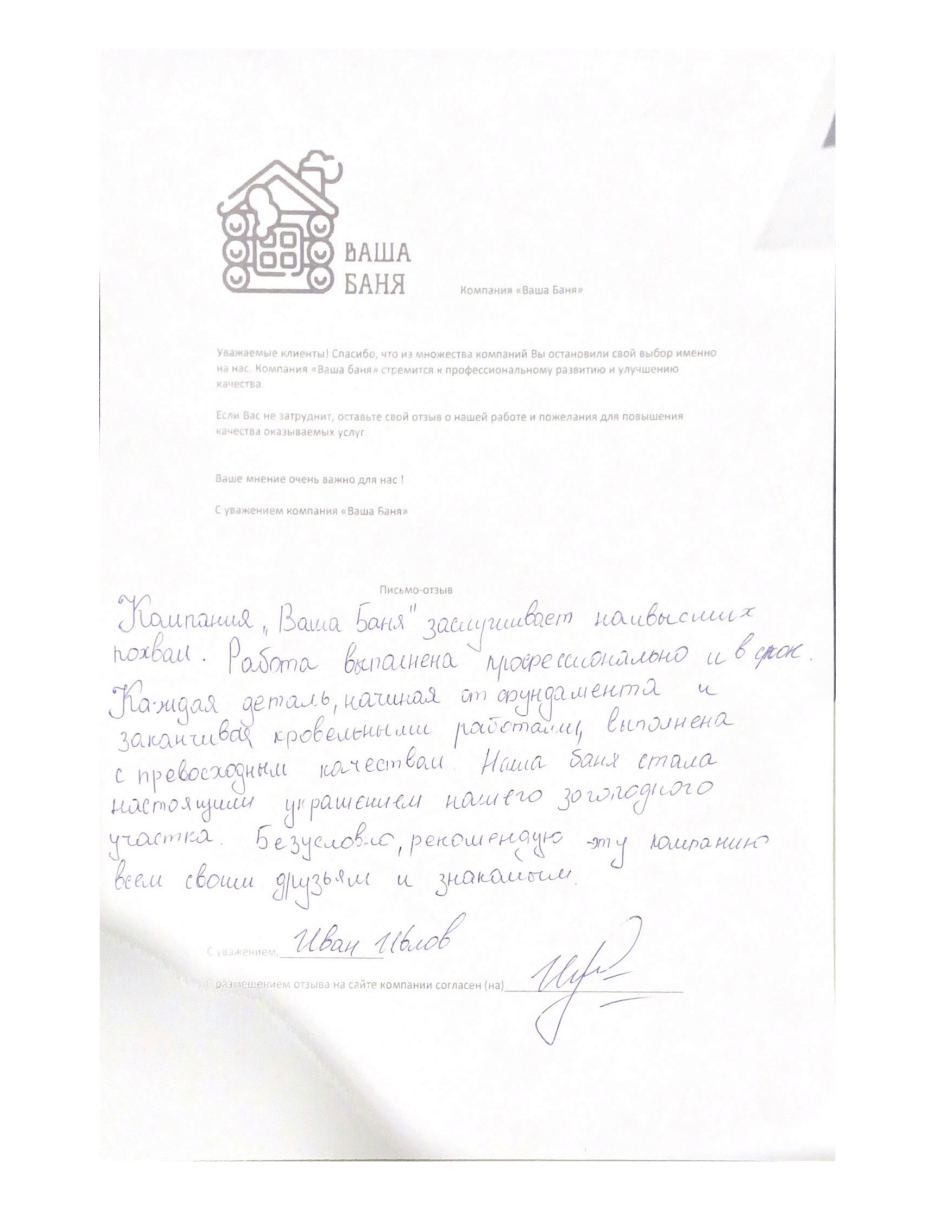 ВАША
БАНЯ
Компания «Ваша Баня»
Уважаемые клиенты! Спасибо, что из множества компаний Вы остановили свой выбор именно
на нас. Компания «Ваша баня» стремится к профессиональному развитию и улучшению
качества
Если Вас не затруднит, оставьте свой отзыв о нашей работе и пожелания для повышения
качества оказываемых услуг.
Ваше мнение очень важно для нас !
С уважением компания «Ваша Баня»
Письмо-отзыв
Компания „Ваша Баня" заслуживает наивысших
похвал. Работа выполнена профессионально и в срок.
Каждая деталь, начиная от фундамента и
заканчивая кровельными работами, выполнена
с превосходным качеством. Наша баня стала
настоящим украшением нашего загородного
участка. Безусловно, рекомендую эту компанию
всем своим друзьям и знакомым.
С уважением, Иван
С размещением отзыва на сайте компании согласен (на)